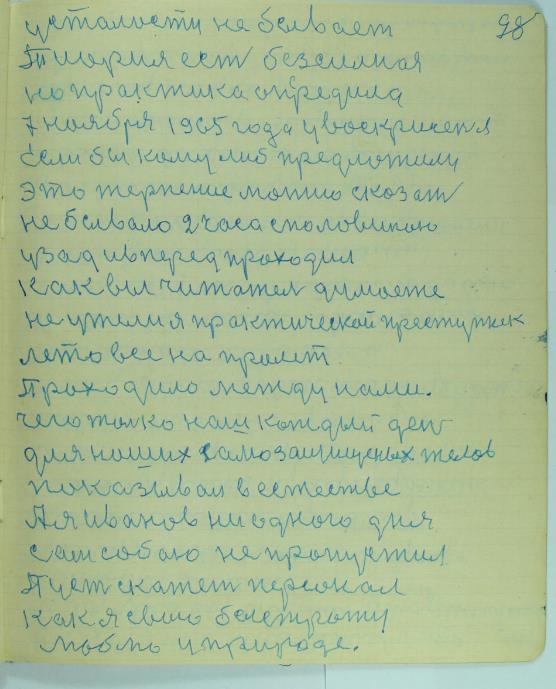 98
усталости не бывает
Тиория ест безсилноя
но практика опредила
7 ноября 1965 года у воскричення
Если бы кому либ предложили
это терпение можно сказат
не бывало 2 часа с половиною
узад ивперед проходил
Как вы читател думаете
не ужели я практической преступнек
лето все на пролет
Проходило между нами.
чего толко наш каждый ден
для наших самозащищеных телов
показывал в естестве
А я иванов ни одного дня
сам собаю не пропустил
Пуст скажет персонал
как я свою
люблю у природе.